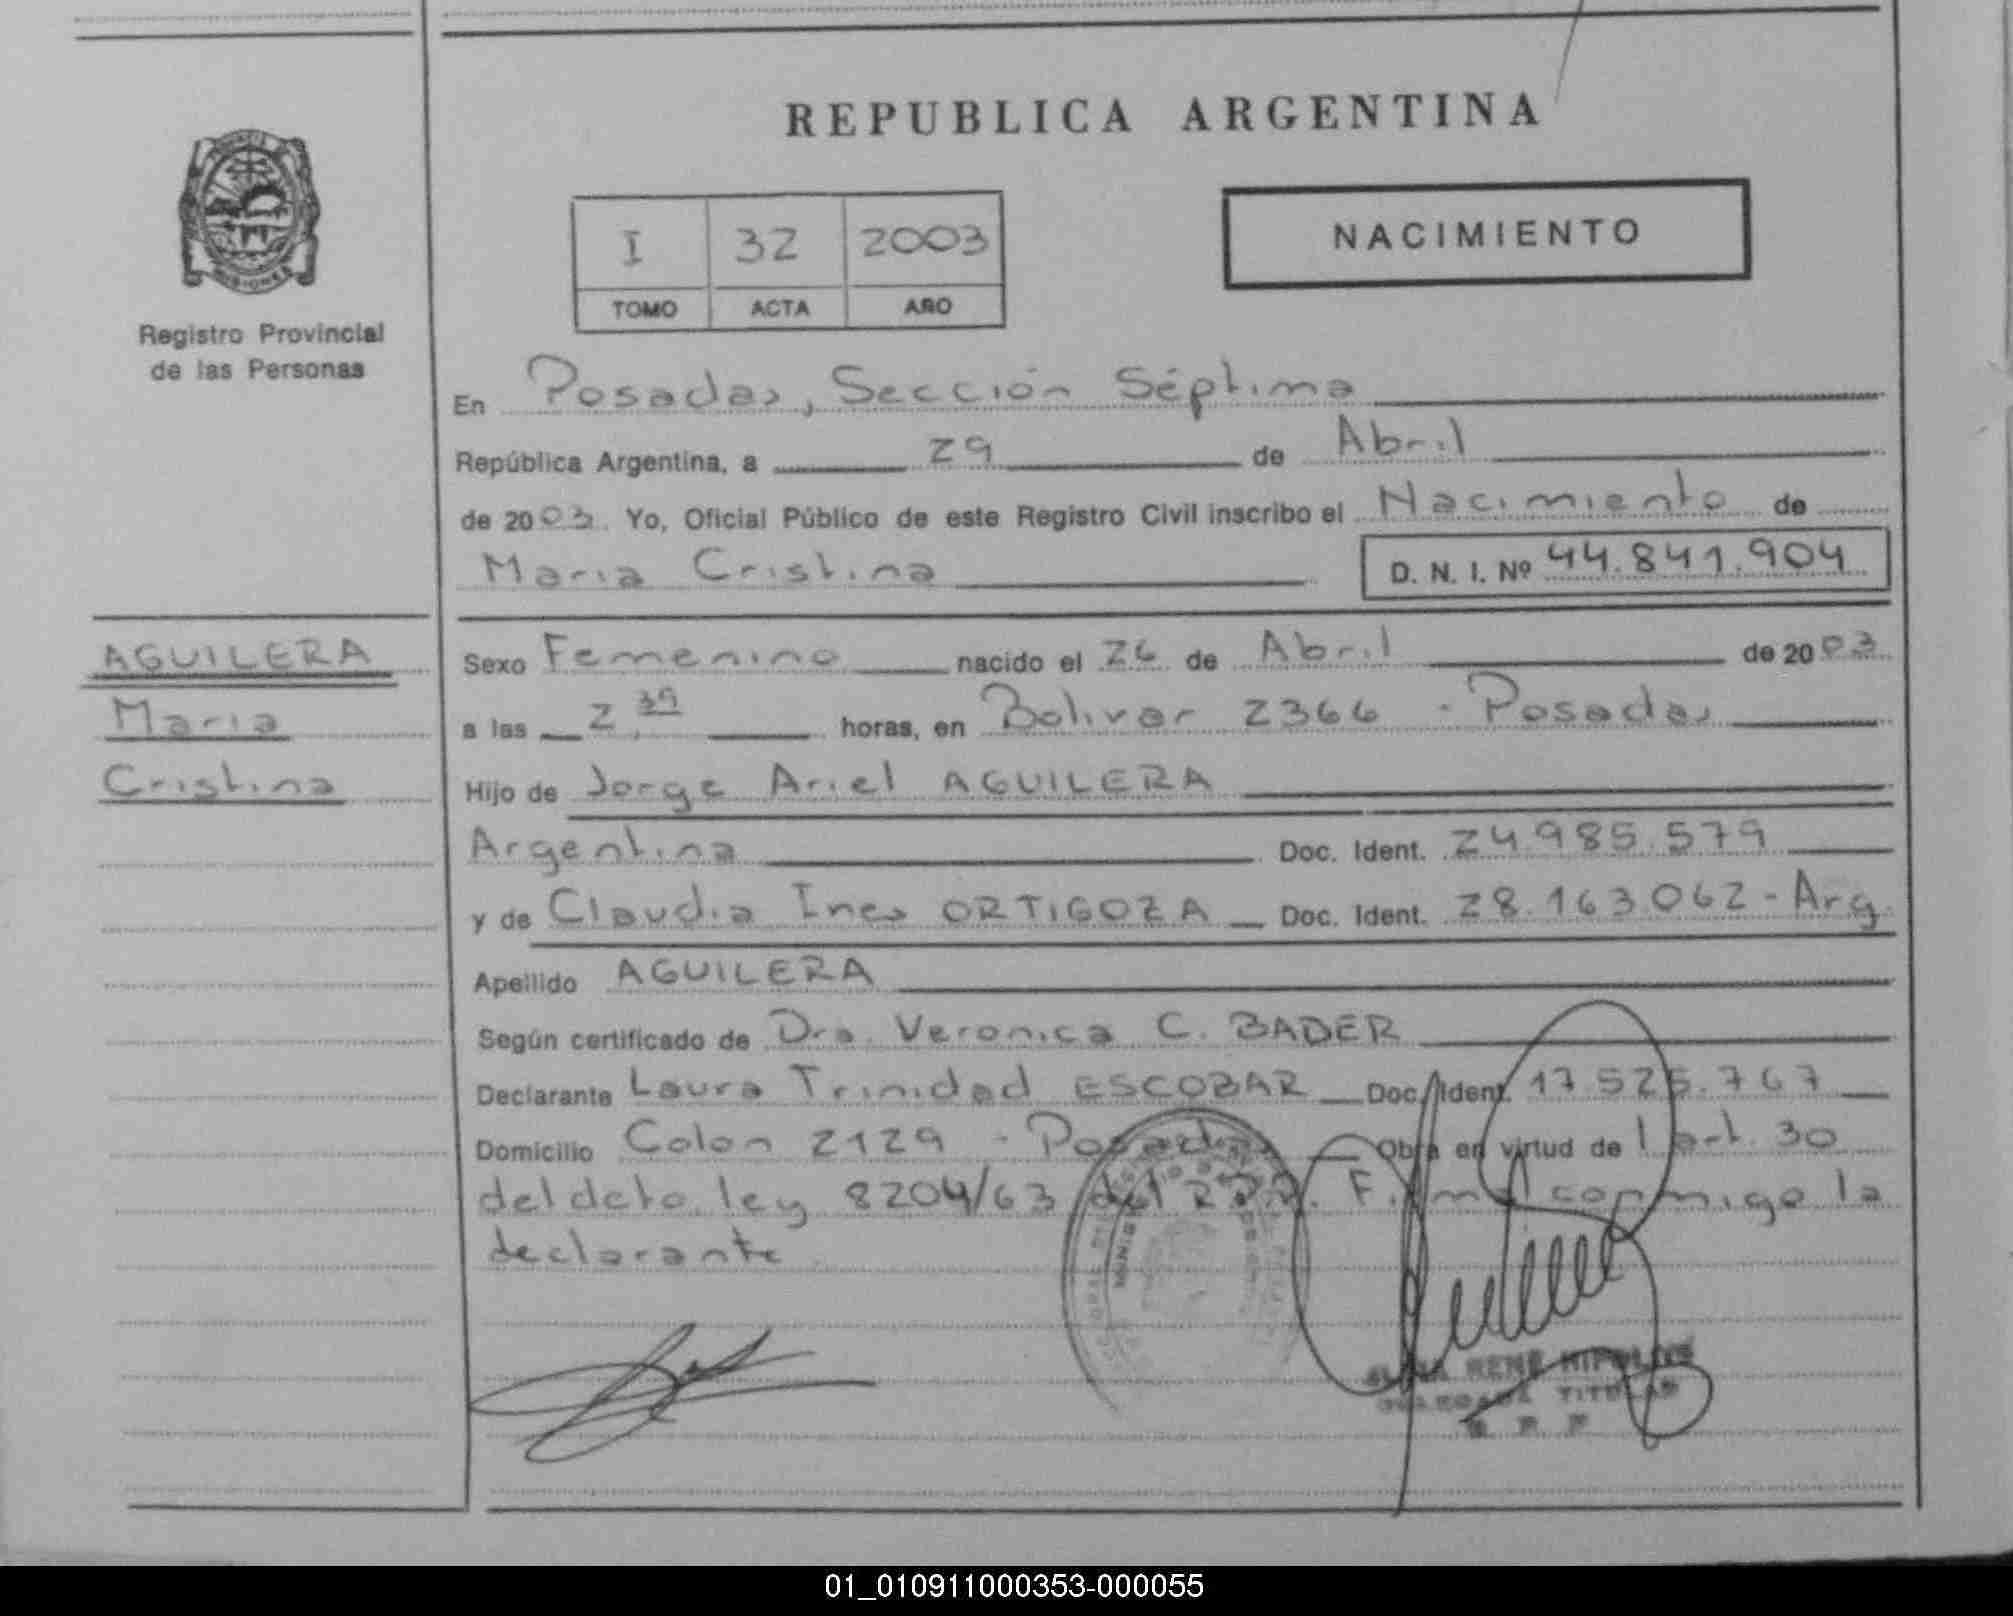 REPUBLICA ARGENTINA
NACIMIENTO
I 32 2003
TOMO ACTA AÑO
Registro Provincial
de las Personas
AGUILERA
Maria
Cristina
En Posadas, Sección Séptima
República Argentina, a 29 de Abril
de 2003. Yo, Oficial Público de este Registro Civil inscribo el Nacimiento de
Maria Cristina D. N. I. Nº 44.841.904
Sexo Femenino nacido el 26 de Abril de 2003
a las 2,39 horas, en Bolivar 2366 - Posadas
Hijo de Jorge Ariel AGUILERA
Argentina Doc. Ident. 24.985.579
y de Claudia Ines ORTIGOZA Doc. Ident. 28.163.062 - Arg.
Apellido AGUILERA
Según certificado de Dra. Veronica C. BADER
Declarante Laura Trinidad ESCOBAR Doc. Ident. 17.525.767
Domicilio Colon 2129 - Posadas Obra en virtud de l art. 30
del dcto. ley 8204/63 del R.P.P. Firma conmigo la
declarante.
RENE HIPOLITO
TITULAR
01_010911000353-000055